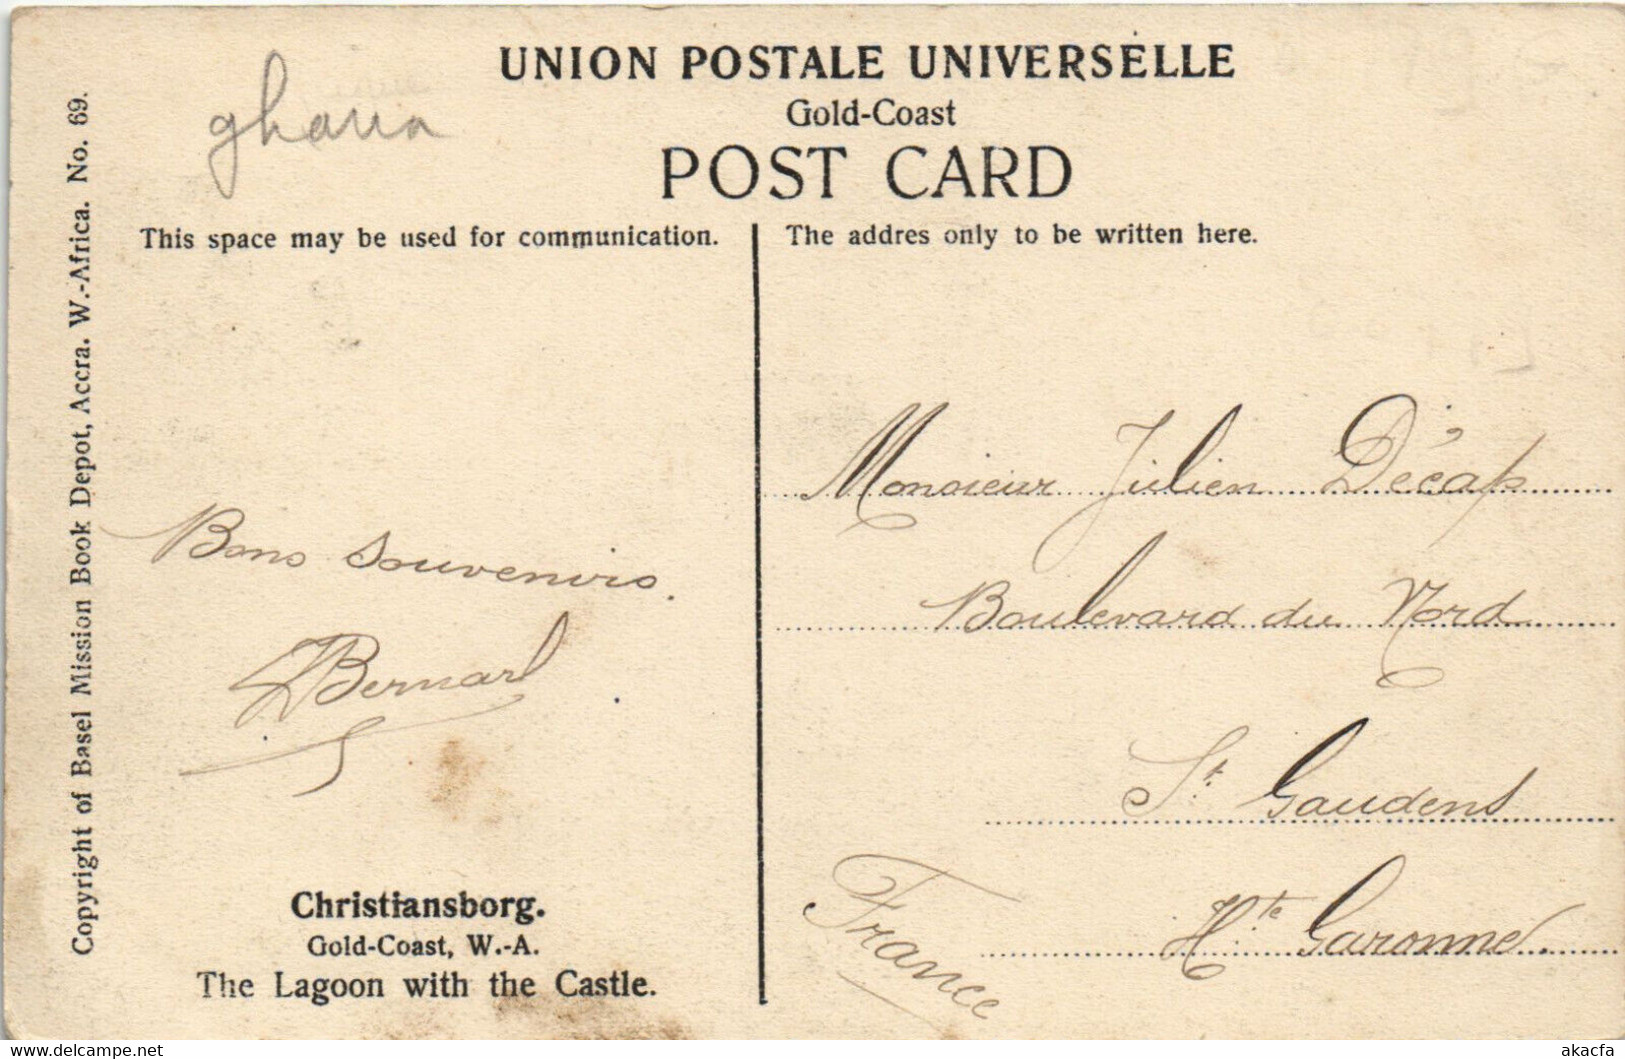 UNION POSTALE UNIVERSELLE
Gold-Coast
POST CARD
ghana
This space may be used for communication.
The addres only to be written here.
Copyright of Basel Mission Book Depot, Accra. W.-Africa. No. 69.
Bons souvenirs.
Bernard
Christiansborg.
Gold-Coast, W.-A.
The Lagoon with the Castle.
Monsieur Julien Décap
Boulevard du Nord
St. Gaudens
Hte Garonne.
France
delcampe.net
akacfa